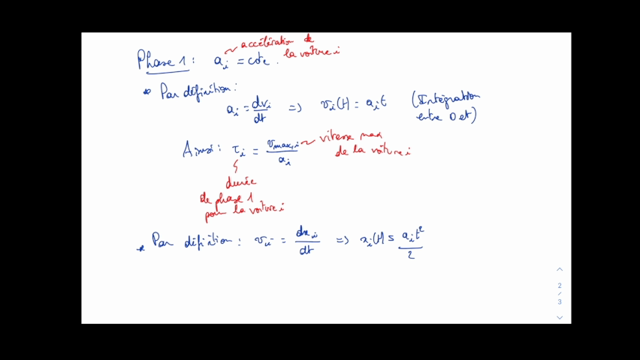 accélération de
la voiture i
Phase 1 : a_i = cste.
* Par définition :
a_i = dv_i/dt ⇒ v_i(t) = a_i t (Intégration
entre 0 et t)
Ainsi : τ_i = v_max,i/a_i vitesse max
de la voiture i
durée
de phase 1
pour la voiture i
* Par définition : v_i = dx_i/dt ⇒ x_i(t) = a_i t²/2
2
3